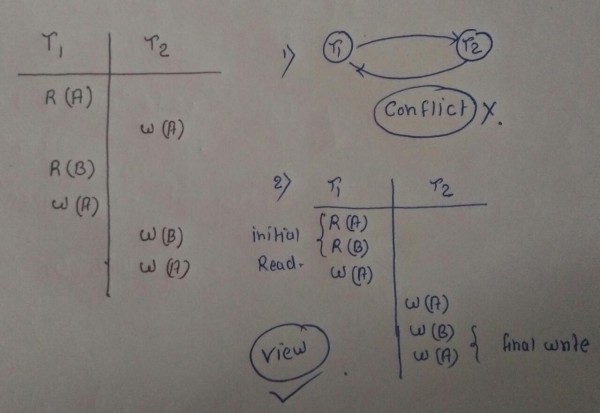 T1 T2
R(A)
W(A)
R(B)
W(A)
W(B)
W(A)
1) T1 T2
Conflict X.
2) T1 T2
initial R(A)
Read. R(B)
W(A)
W(A)
W(B)
W(A) final write
View